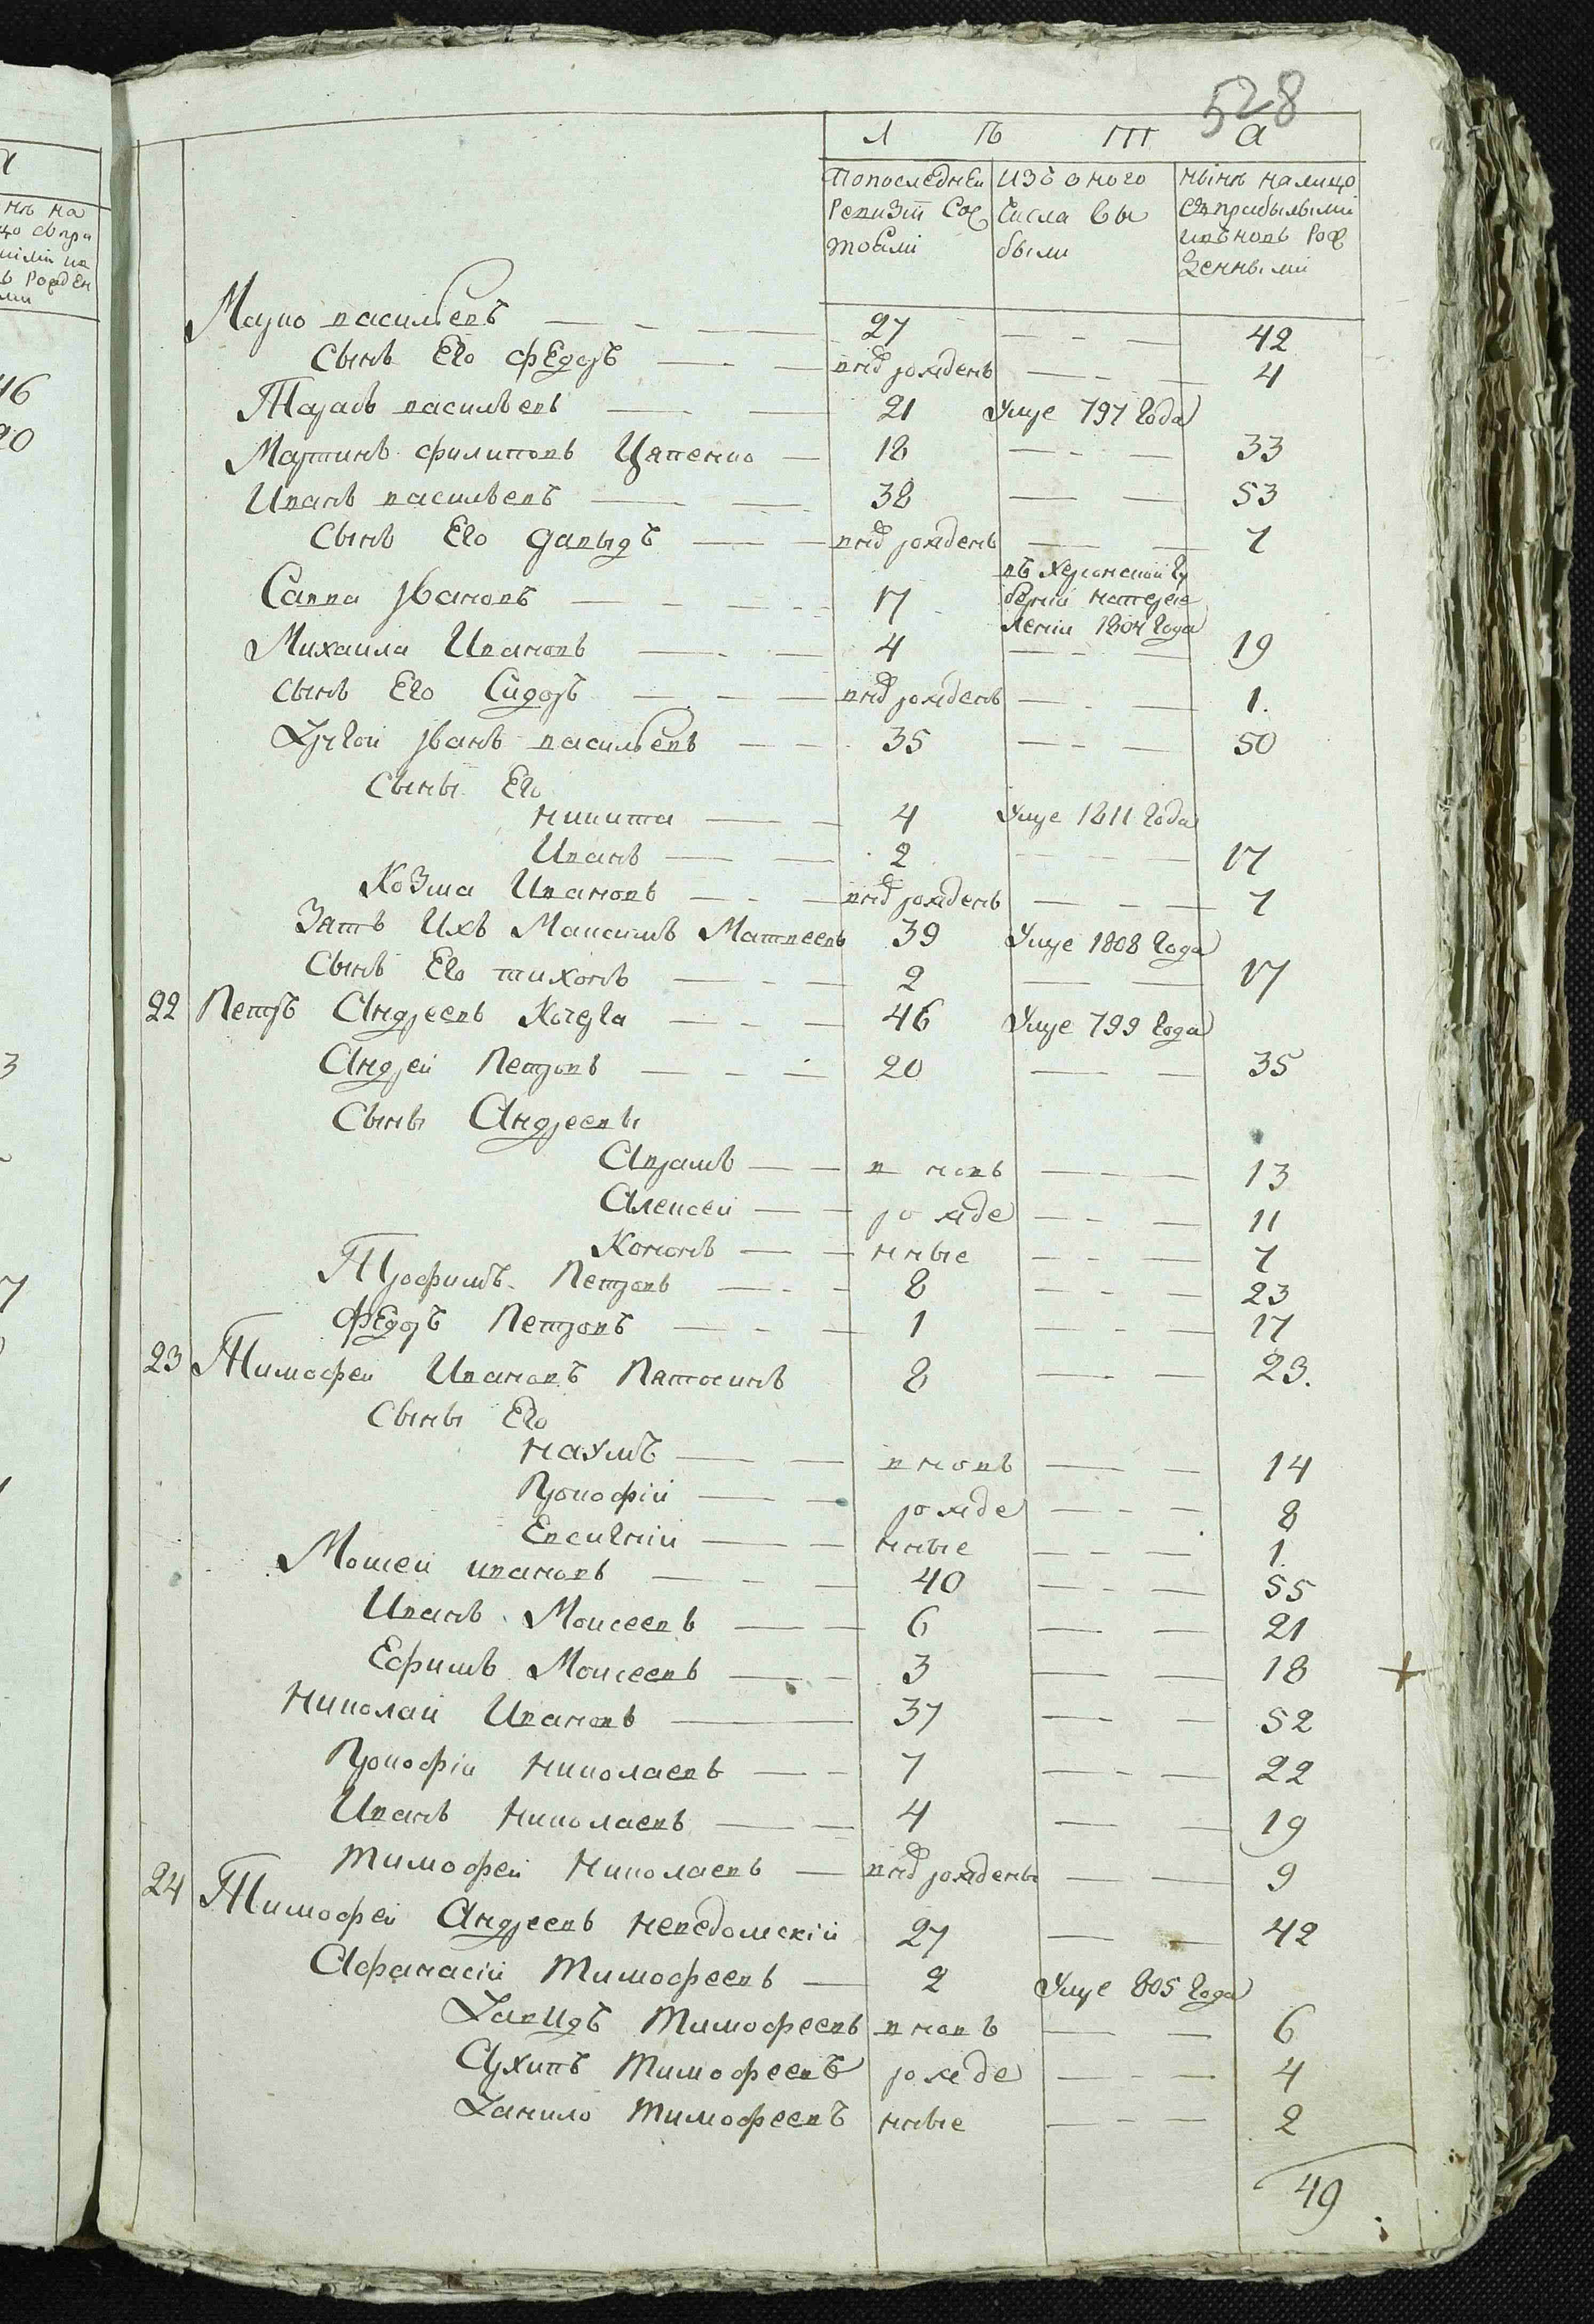 528
Л Ѣ Т А
Попоследней Изъ оного нынѣ налицо
Ревизіи Сос числа вы съприбылыми
тояли были ивъновь Рож
денными
Марко васильевъ 27 42
Сынъ Его Федоръ внов рожденъ 4
Тарасъ васильевъ 21 Умре 797 Года
Мартинъ филиповъ Цапенко 18 33
Иванъ васильевъ 38 53
Сынъ Его давыдъ внов рожденъ 7
Савва Ивановъ 17 въ Херсонской Гу
берніи
1804 Года
Михаила Ивановъ 4 19
сынъ Его Сидоръ внов рожденъ 1.
Другой Иванъ васильевъ 35 50
Сыны Его
никита 4 Умре 1811 Года
Иванъ 2 17
Козма Ивановъ внов рожденъ 7
Зять Ихъ Максимъ Матвеевъ 39 Умре 1808 Года
Сынъ Его тихонъ 2 17
22 Петръ Андреевъ Кочерга 46 Умре 799 Года
Андрей Петровъ 20 35
Сыны Андреевы
Аврамъ в новь 13
Алексей рожде 11
Кононъ нные 7
Трофимъ Петровъ 8 23
Федоръ Петровъ 1 17
23 Тимофеи Ивановъ 8 23.
Сыны Его
наумъ вновь 14
Прокофій рожде 8
Евсигній нные 1.
Мосеи ивановъ 40 55
Иванъ Моисеевъ 6 21
Ефимъ Моисеевъ 3 18
Николаи Ивановъ 37 52
Прокофіи николаевъ 7 22
Иванъ николаевъ 4 19
тимофеи николаевъ внов рожденъ 9
24 Тимофеи Андреевъ неведомскій 27 42
Афанасіи тимофеевъ 2 Умре 805 Года
Давидъ тимофеевъ вновъ 6
Архипъ тимофеевъ рожде 4
Данило тимофеевъ нные 2
49